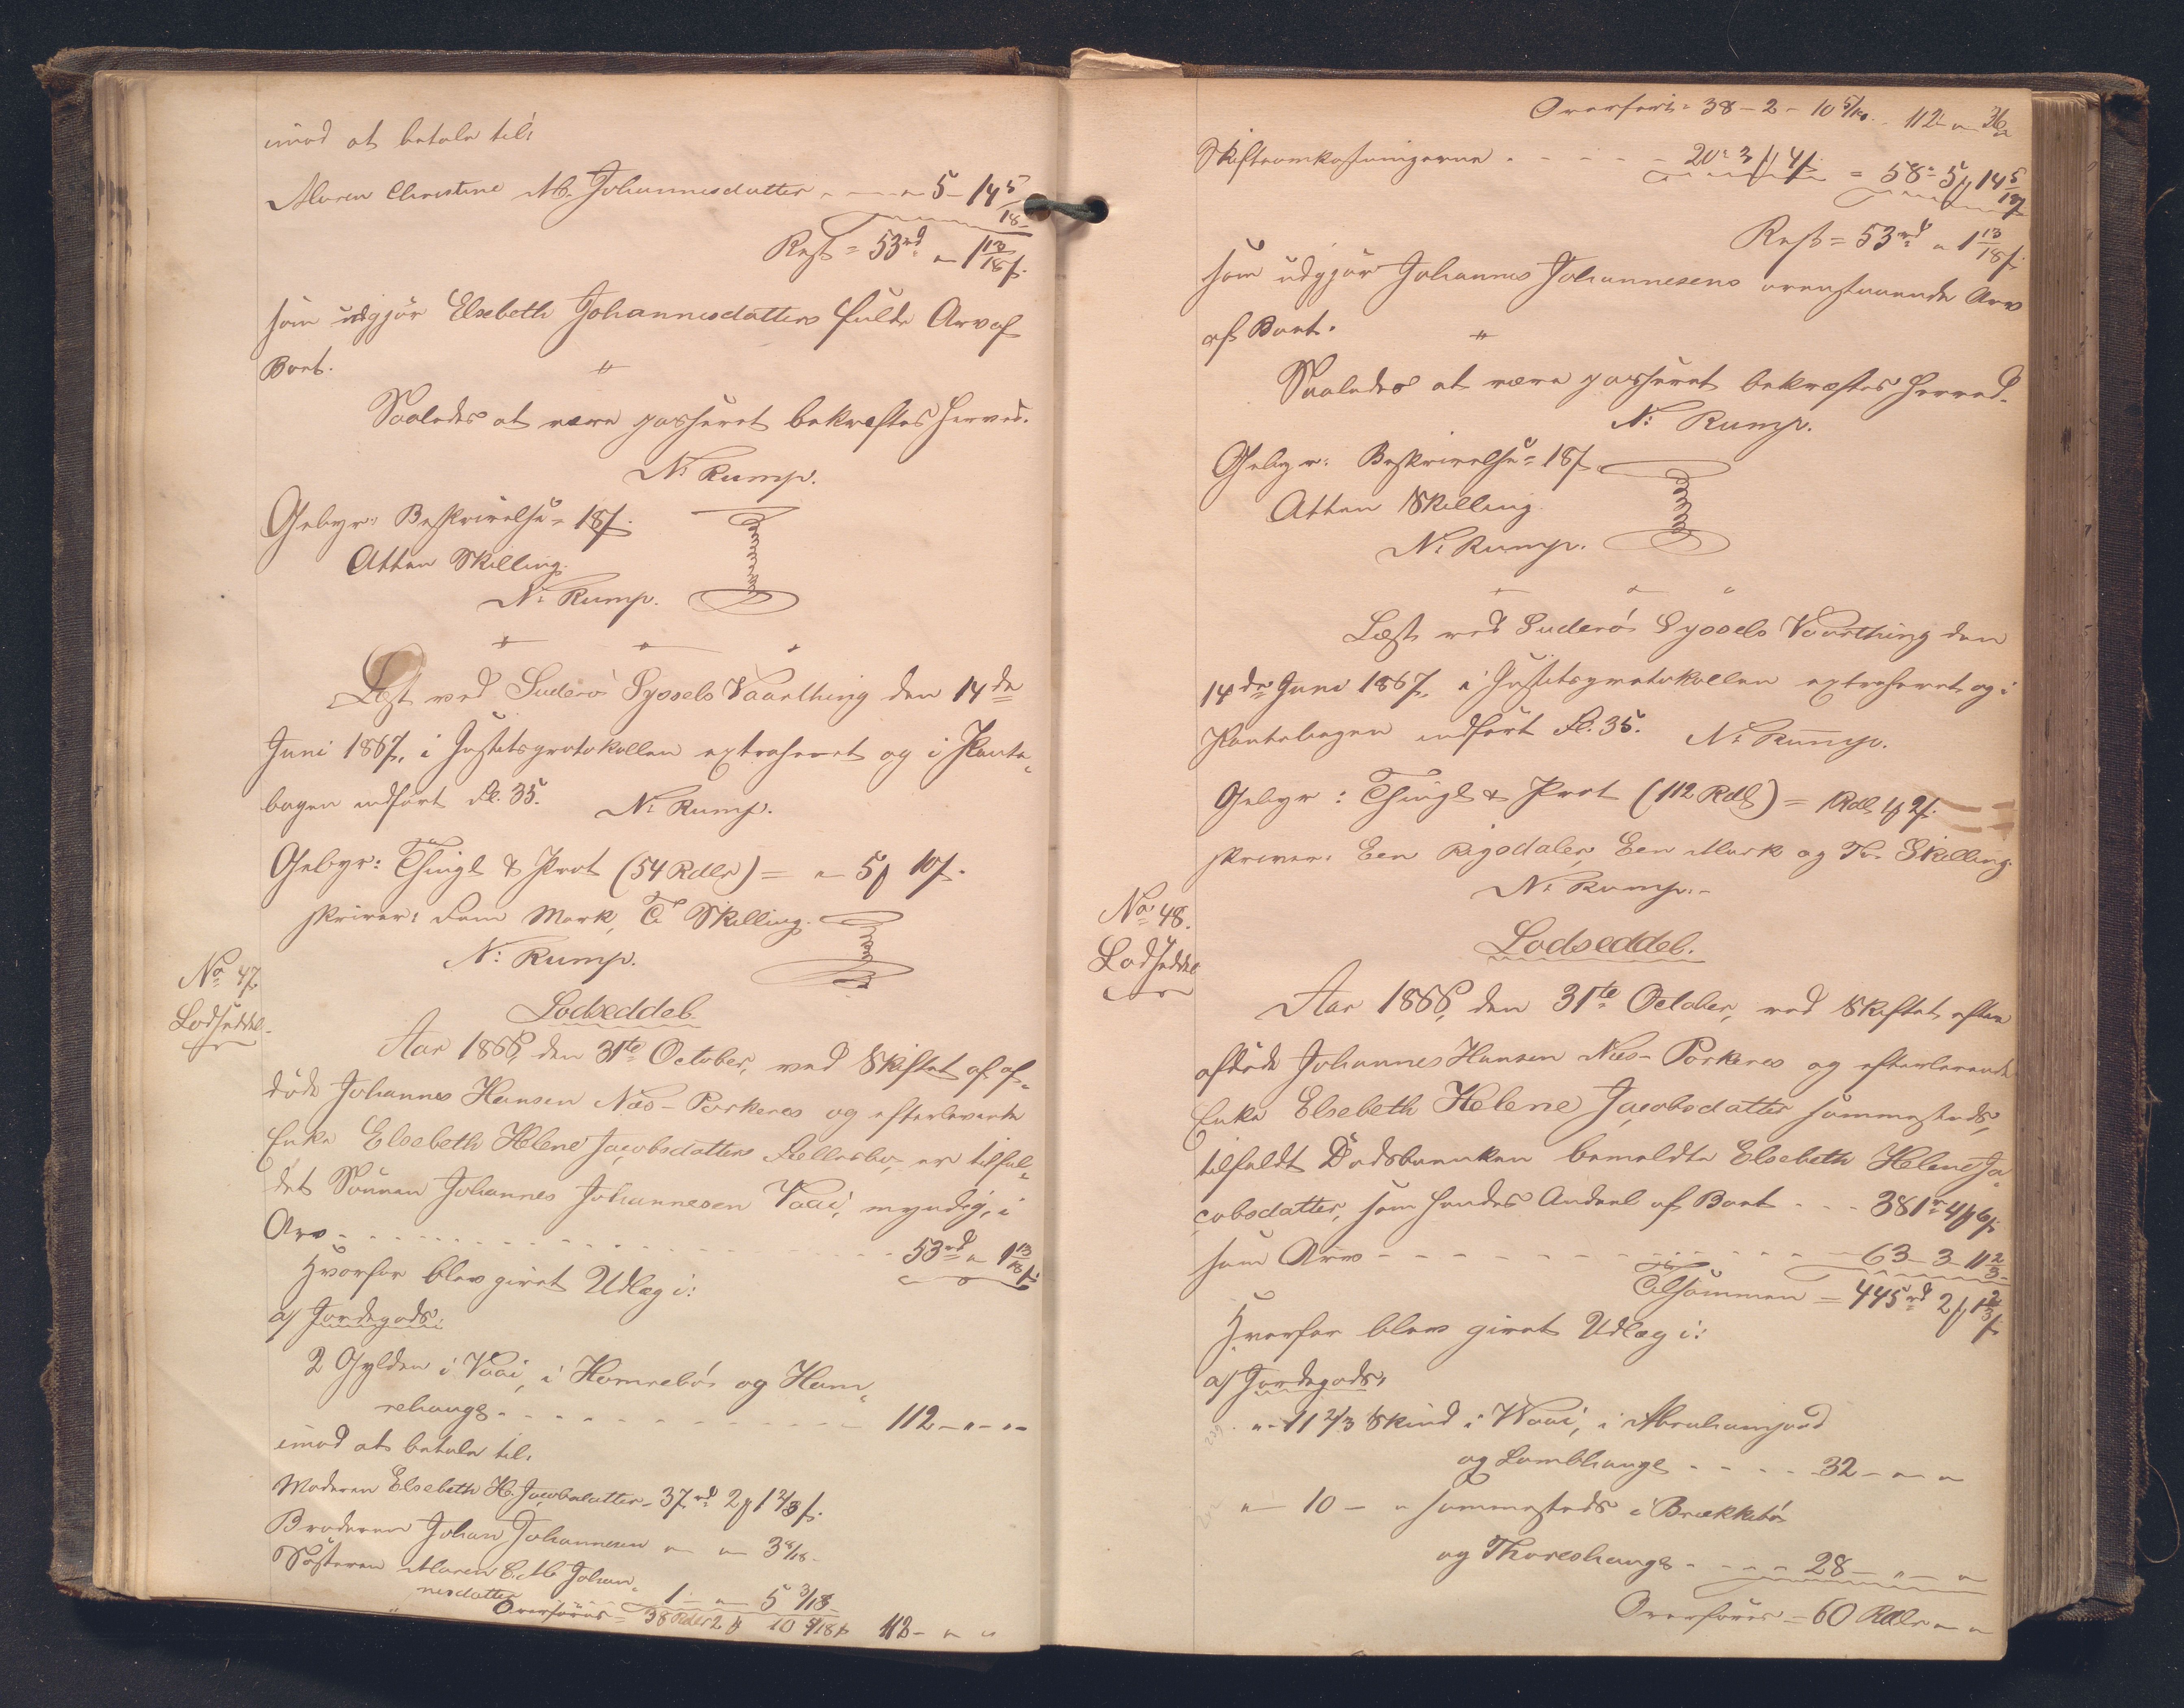 imod at betale til:
Maren Christine M. Johannesdatter - - - " 5 - 14 5/18
Rest = 53 rd " 1 13/18 ſ.
som udgjør Elsebeth Johannesdatters fulde Arv af
Boet. "
Saaledes at være passeret bekræftes herved.
N: Rump.
Gebyr: Beskrivelse = 18 ſ.
Atten Skilling.
N: Rump.
Læst ved Suderø Syssels Vaarthing den 14de
Juni 1867, i Justitsprotokollen extraheret og i Pante-
bogen indført Fl. 35. N: Rump.
Gebyr: Thingl & Prot (54 Rdlr) = " 5 ꝑ 10 ſ.
skriver: Fem Mark, Ti Skilling.
N: Rump.
No 47.
Lodseddel.
Lodseddel.
Aar 1866, den 31te October, ved Skiftet af af-
døde Johannes Hansen Næs-Porkeres og efterlevende
Enke Elsebeth Helene Jacobsdatters Fellesbo, er tilfal-
det Sønnen Johannes Johannesen Vaai, myndig, i
Arv - - - - 53 rd " 1 13/18 ſ.
Hvorfor blev givet Udlæg i:
a) Jordegods:
2 Gylden i Vaai, i Homrebø og Ham-
rehauge - - - - 112 - " - "
imod at betale til:
Moderen Elsebeth H. Jacobsdatter - 37 rd 2 ꝑ 1 2/3 ſ.
Broderen Johan Johannesen " - " 3 8/18 -
Søsteren Maren C. M. Johan-
nesdatter - - 1 - " 5 3/18
Overføres = 38 Rdlr 2 ꝑ 10 5/18 ſ 112 - " "
Overført = 38 - 2 - 10 5/18 . . 112 " "
Skifteomkostningerne - - - - - 20 " 3 ꝑ 4 ſ. = 58 " 5 ꝑ 14 5/18 ſ
Rest = 53 rd " 1 13/18 ſ.
som udgjør Johannes Johannesens ovenstaaende Arv
af Boet. "
Saaledes at være passeret bekræftes herved.
N: Rump.
Gebyr: Beskrivelse = 18 ſ.
Atten Skilling.
N: Rump.
Læst ved Suderø Syssels Vaarthing den
14de Juni 1867, i Justitsprotokollen extraheret og i
Pantebogen indført Fl. 35. N: Rump.
Gebyr: Thingl & Prot (112 Rdl) = 1 Rdl 1 ꝑ 2 ſ.
skriver: Een Rigsdaler, Een Mark og To Skilling.
N: Rump. -
No 48.
Lodseddel
Lodseddel.
Aar 1866, den 31te October, ved Skiftet efter
afdøde Johannes Hansen Næs-Porkeres og efterlevende
Enke Elsebeth Helene Jacobsdatter sammesteds,
tilfaldt Dødsboenken bemeldte Elsebeth Helene Ja-
cobsdatter, som hendes Andeel af Boet - - - 381 rd 4 ꝑ 6 ſ.
som Arv - - - - - 63 - 3 - 11 2/3 -
Tilsammen = 445 rd 2 ꝑ 1 2/3 ſ.
Hvorfor blev givet Udlæg i:
a) Jordegods:
" - 11 2/3 Skind i Waai, i Abrahamjord
og Lambhauge - - - - 32 - " "
" - 10 - " sammesteds i Brekkebø
og Thoreshauge - - - - 28 - " - "
Overføres = 60 Rdlr " "